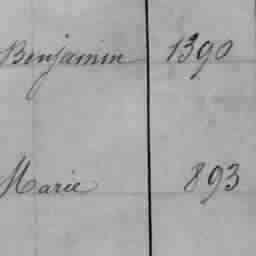 Benjamin 1390
Marie 893